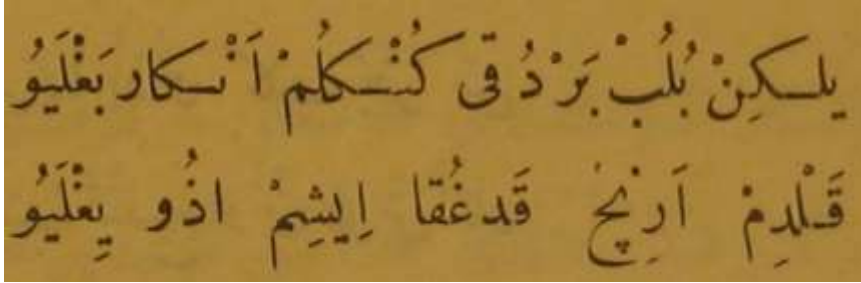 يلكِنْ بُلُبْ بَرْدُقى كُنْكُلُمْ اَنْكار بَغْلَيُو
قَلْدِمْ اَرِنْجْ قَدغُقا اِيشِمْ اذُو يِغْلَيُو